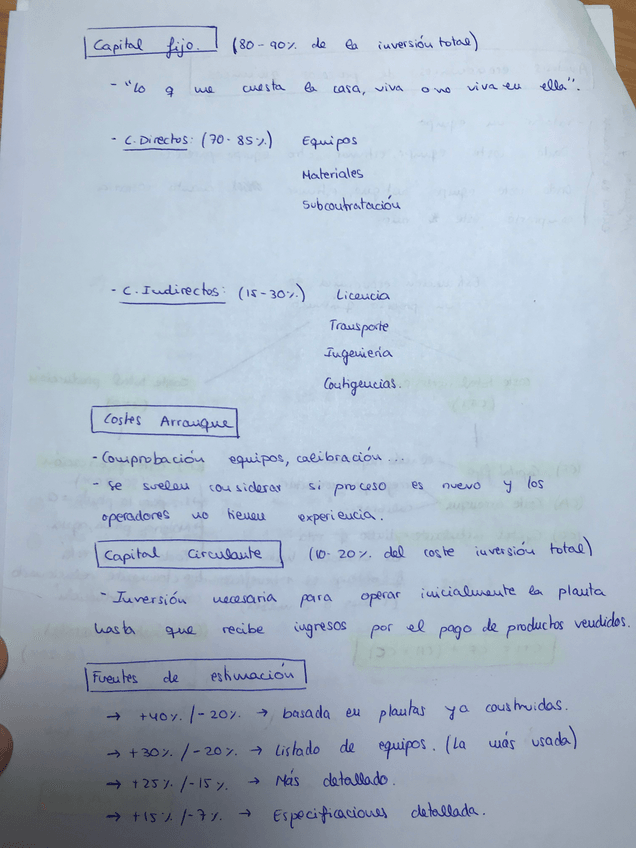 Capital fijo. (80-90% de la inversión total)
- "Lo q me cuesta la casa, viva o no viva en ella".
- C. Directos: (70-85%) Equipos
Materiales
Subcontratación
- C. Indirectos: (15-30%) Licencia
Transporte
Ingeniería
Contigencias.
Costes Arranque
- Comprobación equipos, calibración...
- Se suelen considerar si proceso es nuevo y los
operadores no tienen experiencia.
Capital Circulante (10-20% del coste inversión total)
- Inversión necesaria para operar inicialmente la planta
hasta que recibe ingresos por el pago de productos vendidos.
Fuentes de estimación
→ +40% /-20% → basada en plantas ya construidas.
→ +30% /-20% → Listado de equipos. (La más usada)
→ +25% /-15% → Más detallado.
→ +15% /-7% → Especificaciones detallada.